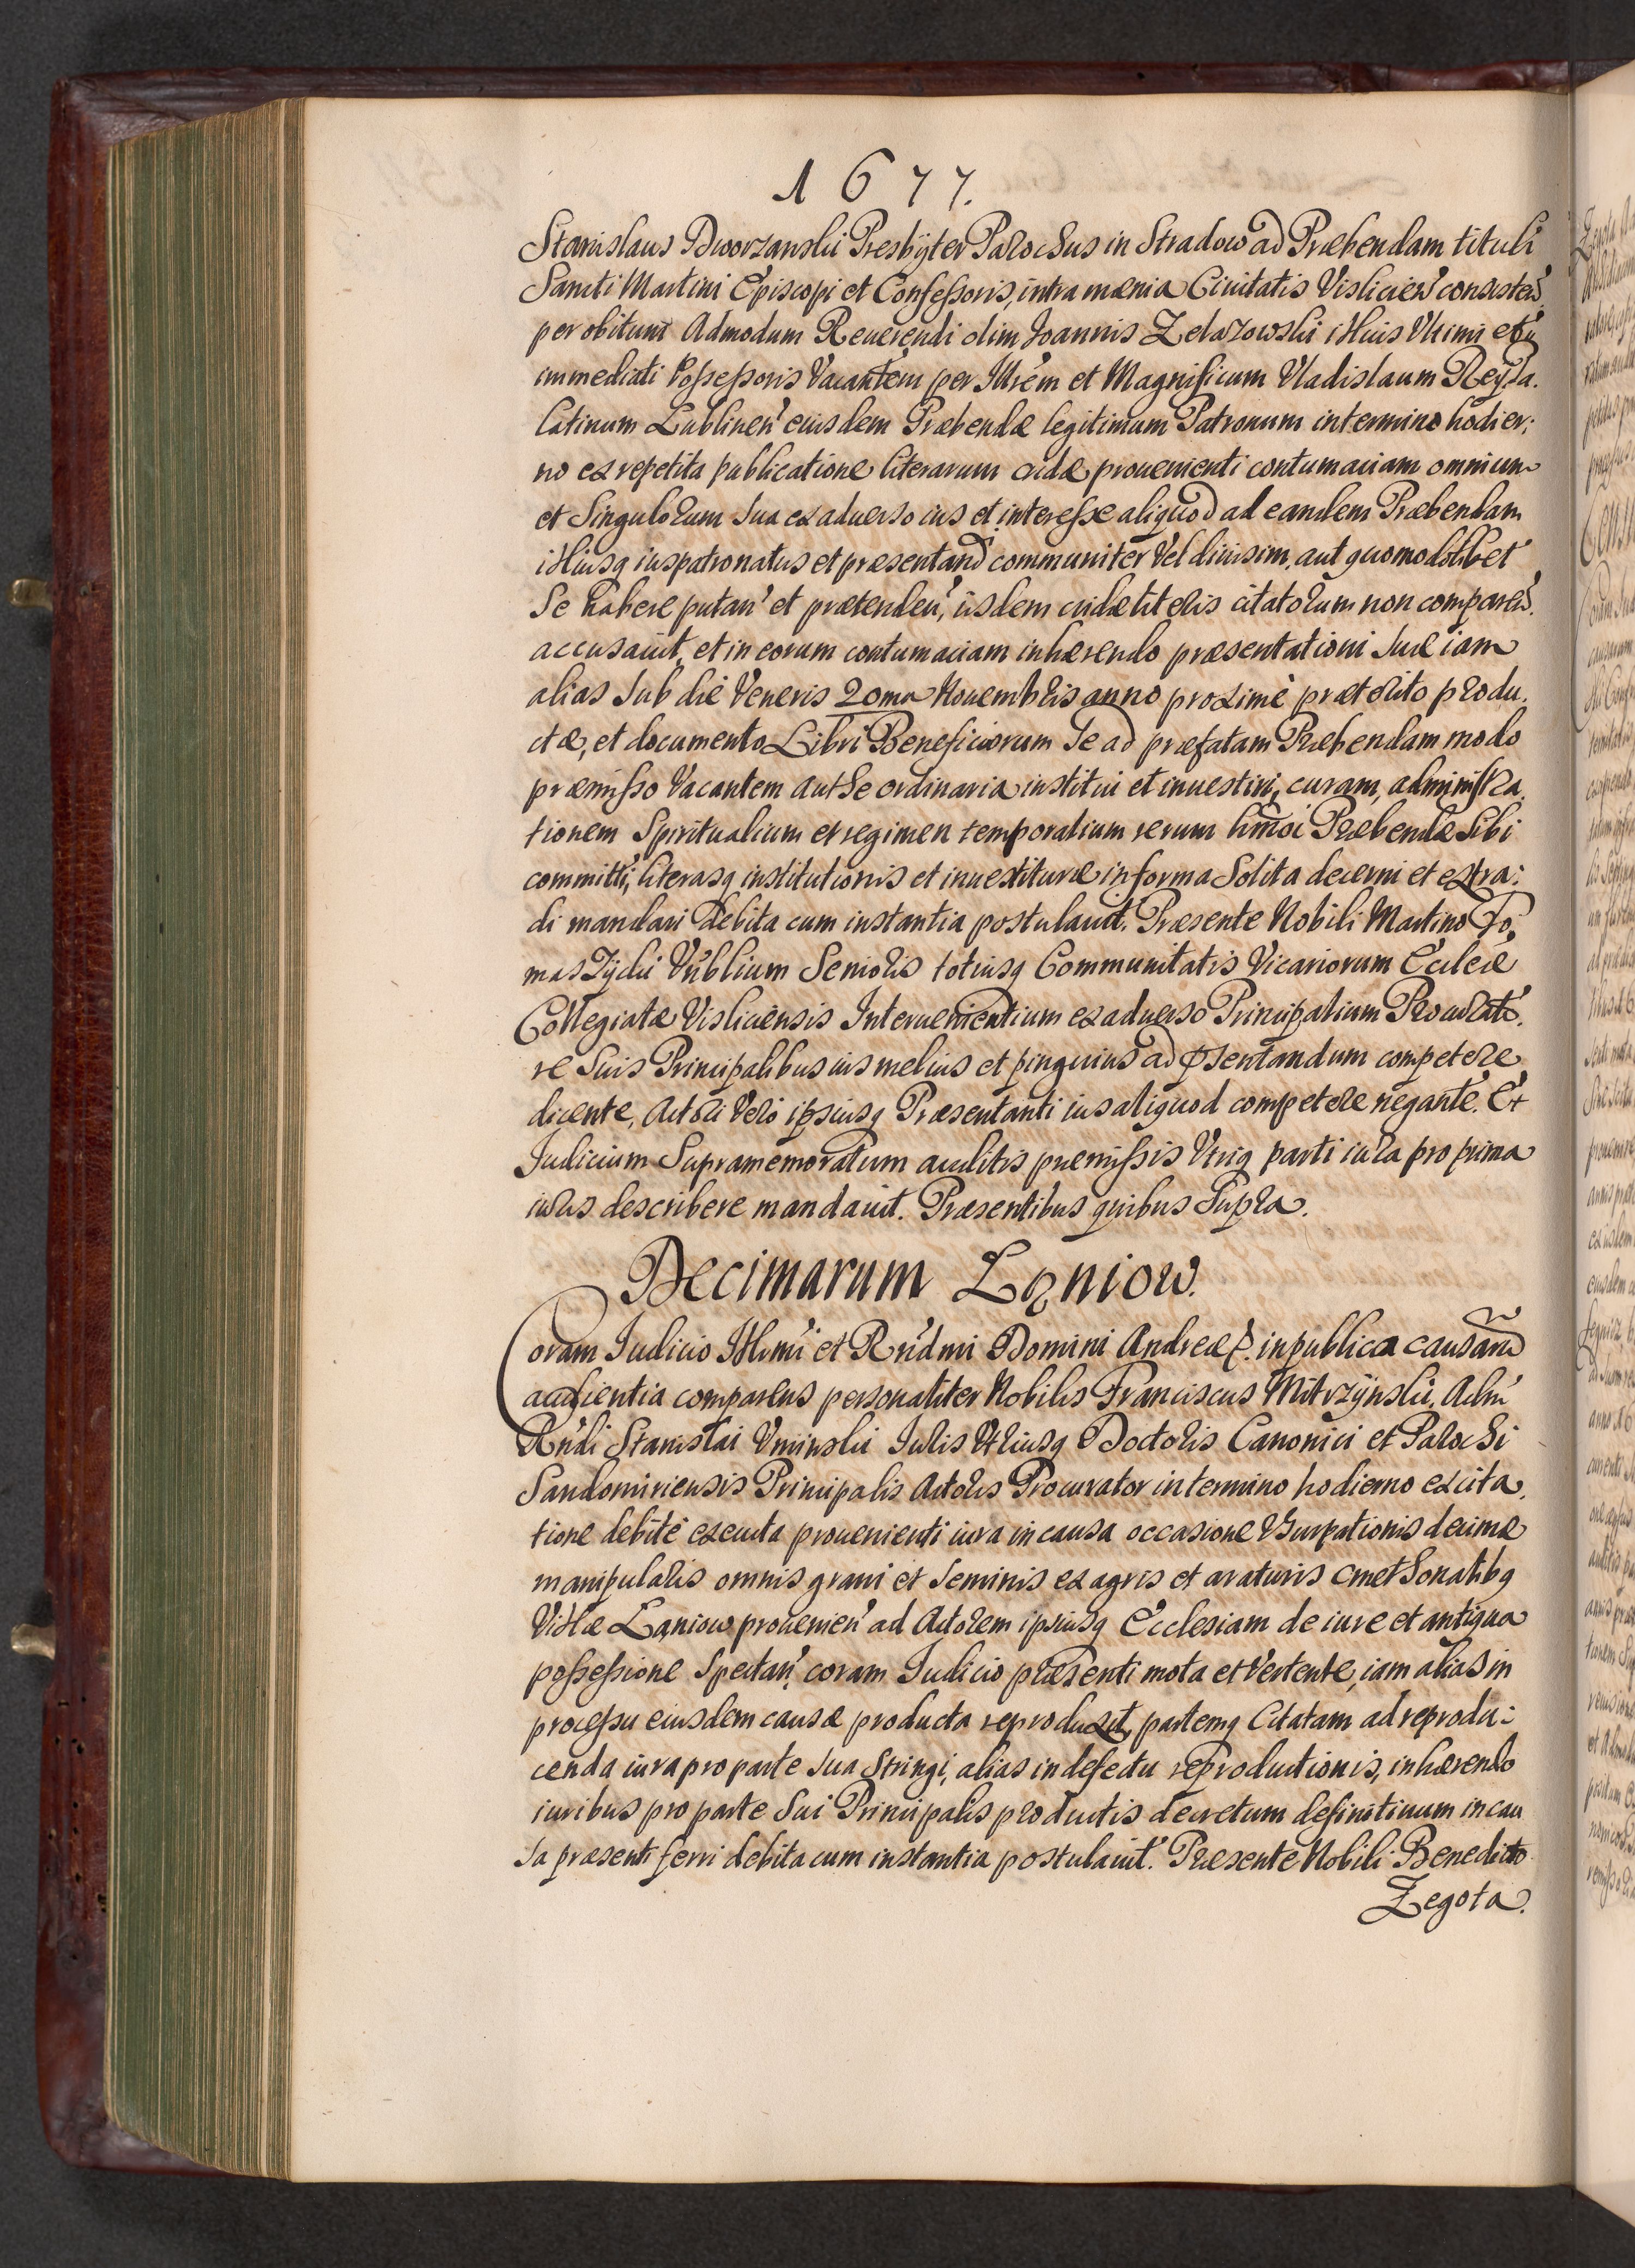 1677.
Stanislaus Dworzanski Presbyter Parochus in Stradow ad Præbendam tituli
Sancti Martini Episcopi et Confessoris, intra mænia Ciuitatis Vislicien' consisten'
per obitum Admodum Reuerendi olim Joannis Zelazowski illius Vltimi et
immediati Possessoris Vacantem per Illrem et Magnificum Vladislaum Rey Pa.
latinum Lublinen' eiusdem Præbendæ legitimum Patronum in termino hodier:
no ex repetita publicatione literarum cridæ prouenienti contumaciam omnium
et Singulorum sua ex aduerso ius et interesse aliquod ad eandem Præbendam
illiusq iuspatronatus et præsentand' communiter Vel diuisim, aut quomodolibet
Se habere putan' et prætenden', iisdem cridæ literis citatorum non comparen'.
accusauit, et in eorum contumaciam inhærendo præsentationi suæ iam
alias sub die Veneris 20ma Nouembris anno proximè præterito produ.
ctæ, et documento Libri Beneficiorum se ad præfatam Præbendam modo
præmisso Vacantem authe ordinaria institui et inuestiri, curam, administra.
tionem Spiritualium et regimen temporalium rerum hmoi Præbendæ Sibi
committi, literasq institutionis et inuestituræ in forma Solita decerni et extra:
di mandari debita cum instantia postulauit. Præsente Nobili Martino To.
maszycki Vnblium Senioris totiusq Communitatis Vicariorum Eccleiæ
Collegiatæ Visliciensis Interuenientium ex aduerso Principalium Procurato.
re Suis Principalibus ius melius et pinguius ad psentandum competere
dicente, Actori Vero ipsiusq Præsentanti ius aliquod competere negante. Et
Iudicium Supramemoratum auditis præmissis Vtriq parti iura pro prima
iuris describere mandauit. Præsentibus quibus Supra.
Decimarum Łąniow.
Coram Iudicio Illmi et Rndmi Domini Andreæ p. in publica causarum
audientia comparens personaliter Nobilis Franciscus Mitrzynski, Adm
Rndi Stanislai Vminski Iuris Vtriusq Doctoris Canonici et Parochi
Sandomiriensis Principalis Actoris Procurator in termino hodierno ex cita.
tione debitè executa prouenienti iura in causa occasione Vsurpationis decimæ
manipularis omnis grani et seminis ex agris et araturis cmethonalibq
Villæ Łąniow prouenien' ad Actorem ipsiusq Ecclesiam de iure et antiqua
possessione Spectan', coram Iudicio præsenti mota et Vertente, iam alias in
processu eiusdem causæ producta reproduxit, partemq Citatam ad reprodu:
cenda iura pro parte sua Stringi, alias in defectu reproductionis, inhærendo
iuribus pro parte Sui Principalis productis decretum definitiuum in cau
sa præsenti ferri debita cum instantia postulauit. Præsente Nobili Benedicto
Zegota.